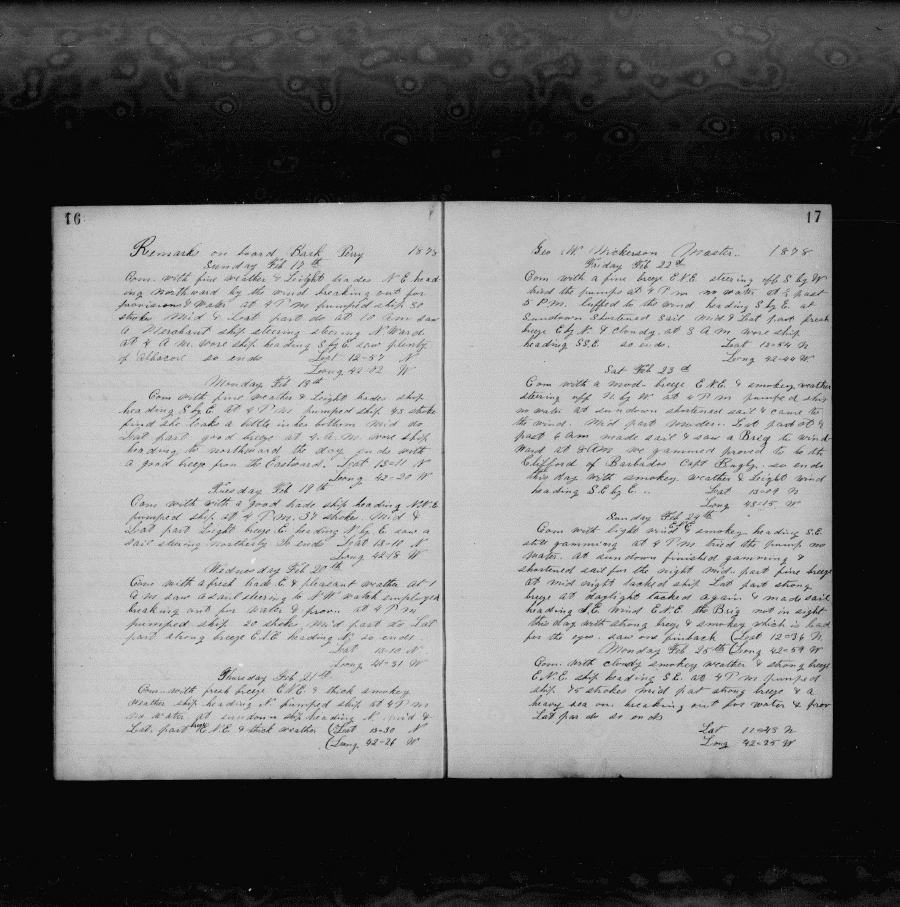 16
Remarks on board Bark Perry 1878
Sunday Feb 17th
Com. with fine weather & Leight trades N.E. head
ing Northward by the wind breaking out for
provisions & Water at 4 P.M. pumped ship 80
stroke Mid & Last part do at 10 Am saw
a Merchant ship steering steering N.Ward
at 4 A.M. wore ship heading S by E saw plenty
of Albacore so ends Lat 12-57 N
Long 42-02 W
Monday Feb 18th
Com with fine weather & Leight trades ship
heading S by E at 4 P.M. pumped ship 43 stroke
find she leaks a little in her bottom Mid do
Lat part good breeze at 4 A.M. wore ship
heading to northward the day ends with
a good breeze from the Eastward. Lat 13-11 N
Long 42-20 W
Tuesday Feb 19th
Com with with a good trade ship heading NNE
pumped ship at 4 P.M. 37 strokes. Mid &
Lat part Light breeze E heading N by E saw a
sail steering northerly So ends Lat 13-10 N
Long 42-18 W
Wednesday Feb 20th
Come with a fresh trade E & pleasant weather At 1
A M saw a sail steering to N.W. watch employed
breaking out for water & prov.. at 4 P M
pumped ship 20 strokes, Mid part do Lat
part strong breeze E.N.E heading N. so ends.
Lat 13-10 N
Long 41-31 W
Thursday Feb 21st
Com. with fresh breeze E.N.E. & thick smokey
weather ship heading N. pumped ship at 4 P M
no water at sundown ship heading N. mid &
Lat. part breeze E.N.E. & thick weather (Lat 13-30 N
(Long 42-26 W
17
Geo W. Nickerson Master. 1878
Friday Feb 22nd
Com with a fine breeze E.N.E steering off S by W
tried the pumps at 4 P M no water at ½ past
5 P.M. luffed to the wind heading S by E. at
Sundown Shortened Sail Mid & Lat part fresh
breeze E by N. & Cloudy at 3 A M. wore ship
heading SSE so ends. Lat 13-54 N
Long 42-44 W
Sat Feb 23d
Com with a mod- breeze E.N.E. & smokey weather
steering off N. by W at 4 P M pumped ship
no water at sundown shortened sail & came to
the wind. Mid part moder.. Lat part at ½
past 6 Am made sail & saw a Brig to wind
ward at 8 AM we gammed proved to be the
Clifford of Barbados Capt so ends
this day with smokey weather & Leight wind
heading S.E. by E .. Lat 13-09 N
Long 43-15 W
Sunday Feb 24th
Com with light wind E.N.E smokey heading S.E.
still gamming at 4 P M tried the pump no
water. at sundown finished gamming &
shortened sail for the night mid.. part fine breeze
at mid night tacked ship Lat part strong
breeze at daylight tacked again & made sail
heading S.E wind E.N.E the Brig not in sight
this day with strong breez & smokey which is bad
for the eyes. saw one finback (Lat 12-36 N.
Monday Feb 25th (Long 42-59 W
Com. with cloudy smokey weather & strong breeze
E.N.E. ship heading S.E. at 4 P.M. pumped
ship 75 strokes mid part strong breeze & a
heavy sea on. breaking out for water & prov
Lat par do so ends
Lat 11-45 N
Long 42-25 W